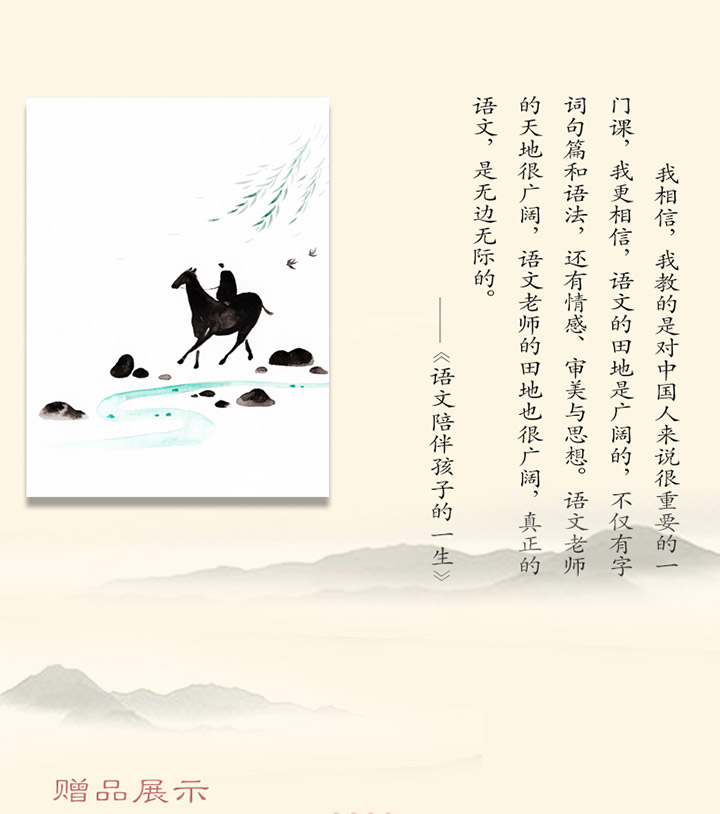 我相信，我教的是对中国人来说很重要的一
门课，我更相信，语文的田地是广阔的，不仅有字
词句篇和语法，还有情感、审美与思想。语文老师
的天地很广阔，语文老师的田地也很广阔，真正的
语文，是无边无际的。
——《语文陪伴孩子的一生》
赠品展示